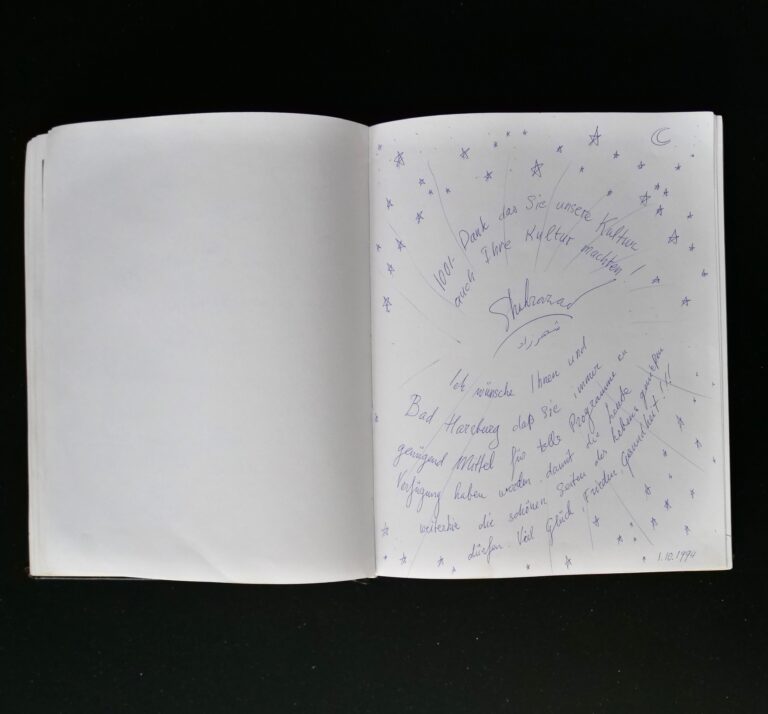 1001- Dank das Sie unsere Kultur
auch Ihre Kultur machten!
Shahrazad
شهرزاد
Ich wünsche Ihnen und
Bad Harzburg daß Sie immer
genügend Mittel für tolle Programme zu
Verfügung haben werden, damit die Leute
weiterhin die schönen Seiten des Lebens genießen
dürfen. Viel Glück, Frieden, Gesundheit!!!
1.10.1994